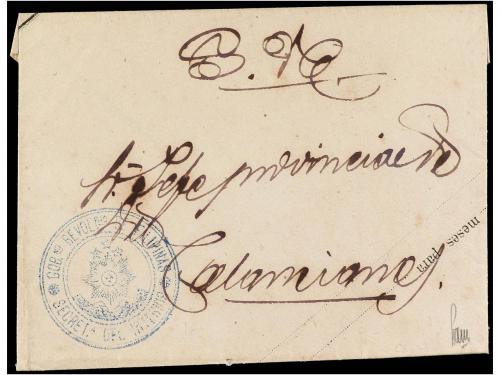 B. N.
Sr. Jefe provincial de
Calamianes.
GOB.NO REVOL.RIO FILIPINAS
SECRETA DEL INTERIOR
meses para